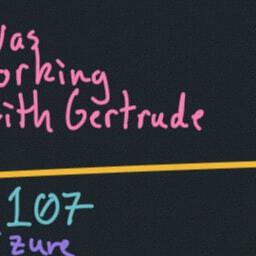 Was
orking
ith Gertrude
107
zure